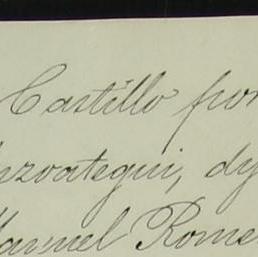 Castillo por
nzoategui, dy
Manuel Rome